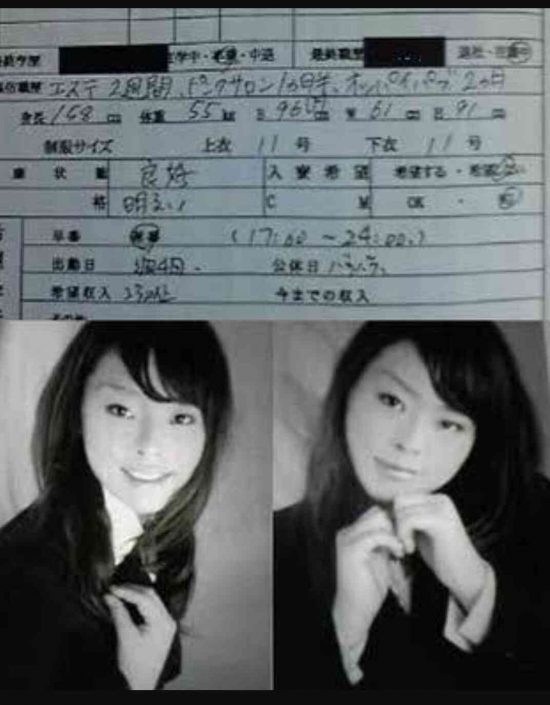 学中・卒業・中退 最終職歴 退社・在職中
エステ 2週間、ピンクサロン1ヵ月半、オッパイパブ 2ヵ月
身長 158 cm 体重 55 kg B 96 cm W 61 cm H 91 cm
制服サイズ 上衣 11 号 下衣 11 号
状態 良好 入寮希望 希望する・希望
格 明るい C M OK ・
早番 (17:00 ~ 24:00)
出勤日 週4日 公休日 バラバラ
希望収入 今までの収入